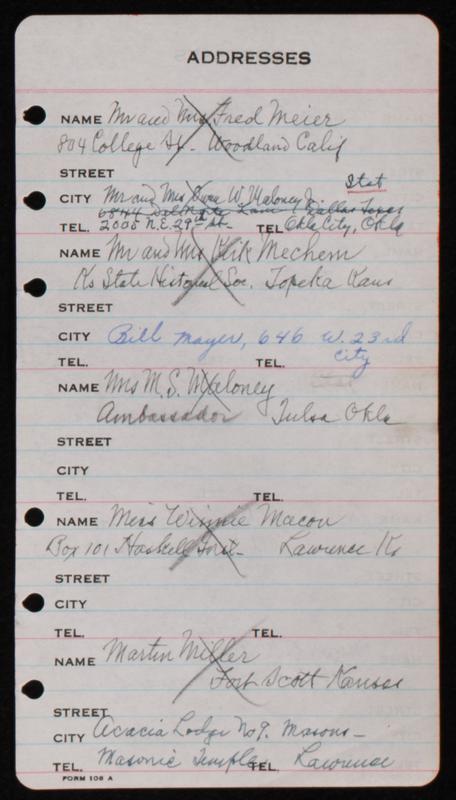 ADDRESSES
NAME Mr and Mrs Fred Meier
804 College St. Woodland Calif
STREET
Stet
CITY Mr and Mrs W. Maloney Jr.
6844 Lane Dallas Texas
TEL. 2005 N.E. 29th St. TEL. Okla City, Okla
NAME Mr and Mrs Kirk Mechem
Ks State Historical Soc. Topeka Kans
STREET
CITY Bill Mayer, 646 W. 23rd
City
TEL. TEL.
NAME Mrs M. S. Maloney
Ambassador Tulsa Okla
STREET
CITY
TEL. TEL.
NAME Miss Winnie Macon
Box 101 Haskell Inst. Lawrence Ks
STREET
CITY
TEL. TEL.
NAME Martin Miller
Fort Scott Kansas
STREET
CITY Acacia Lodge No 9. Masons -
TEL. Masonic Temple TEL. Lawrence
FORM 106 A